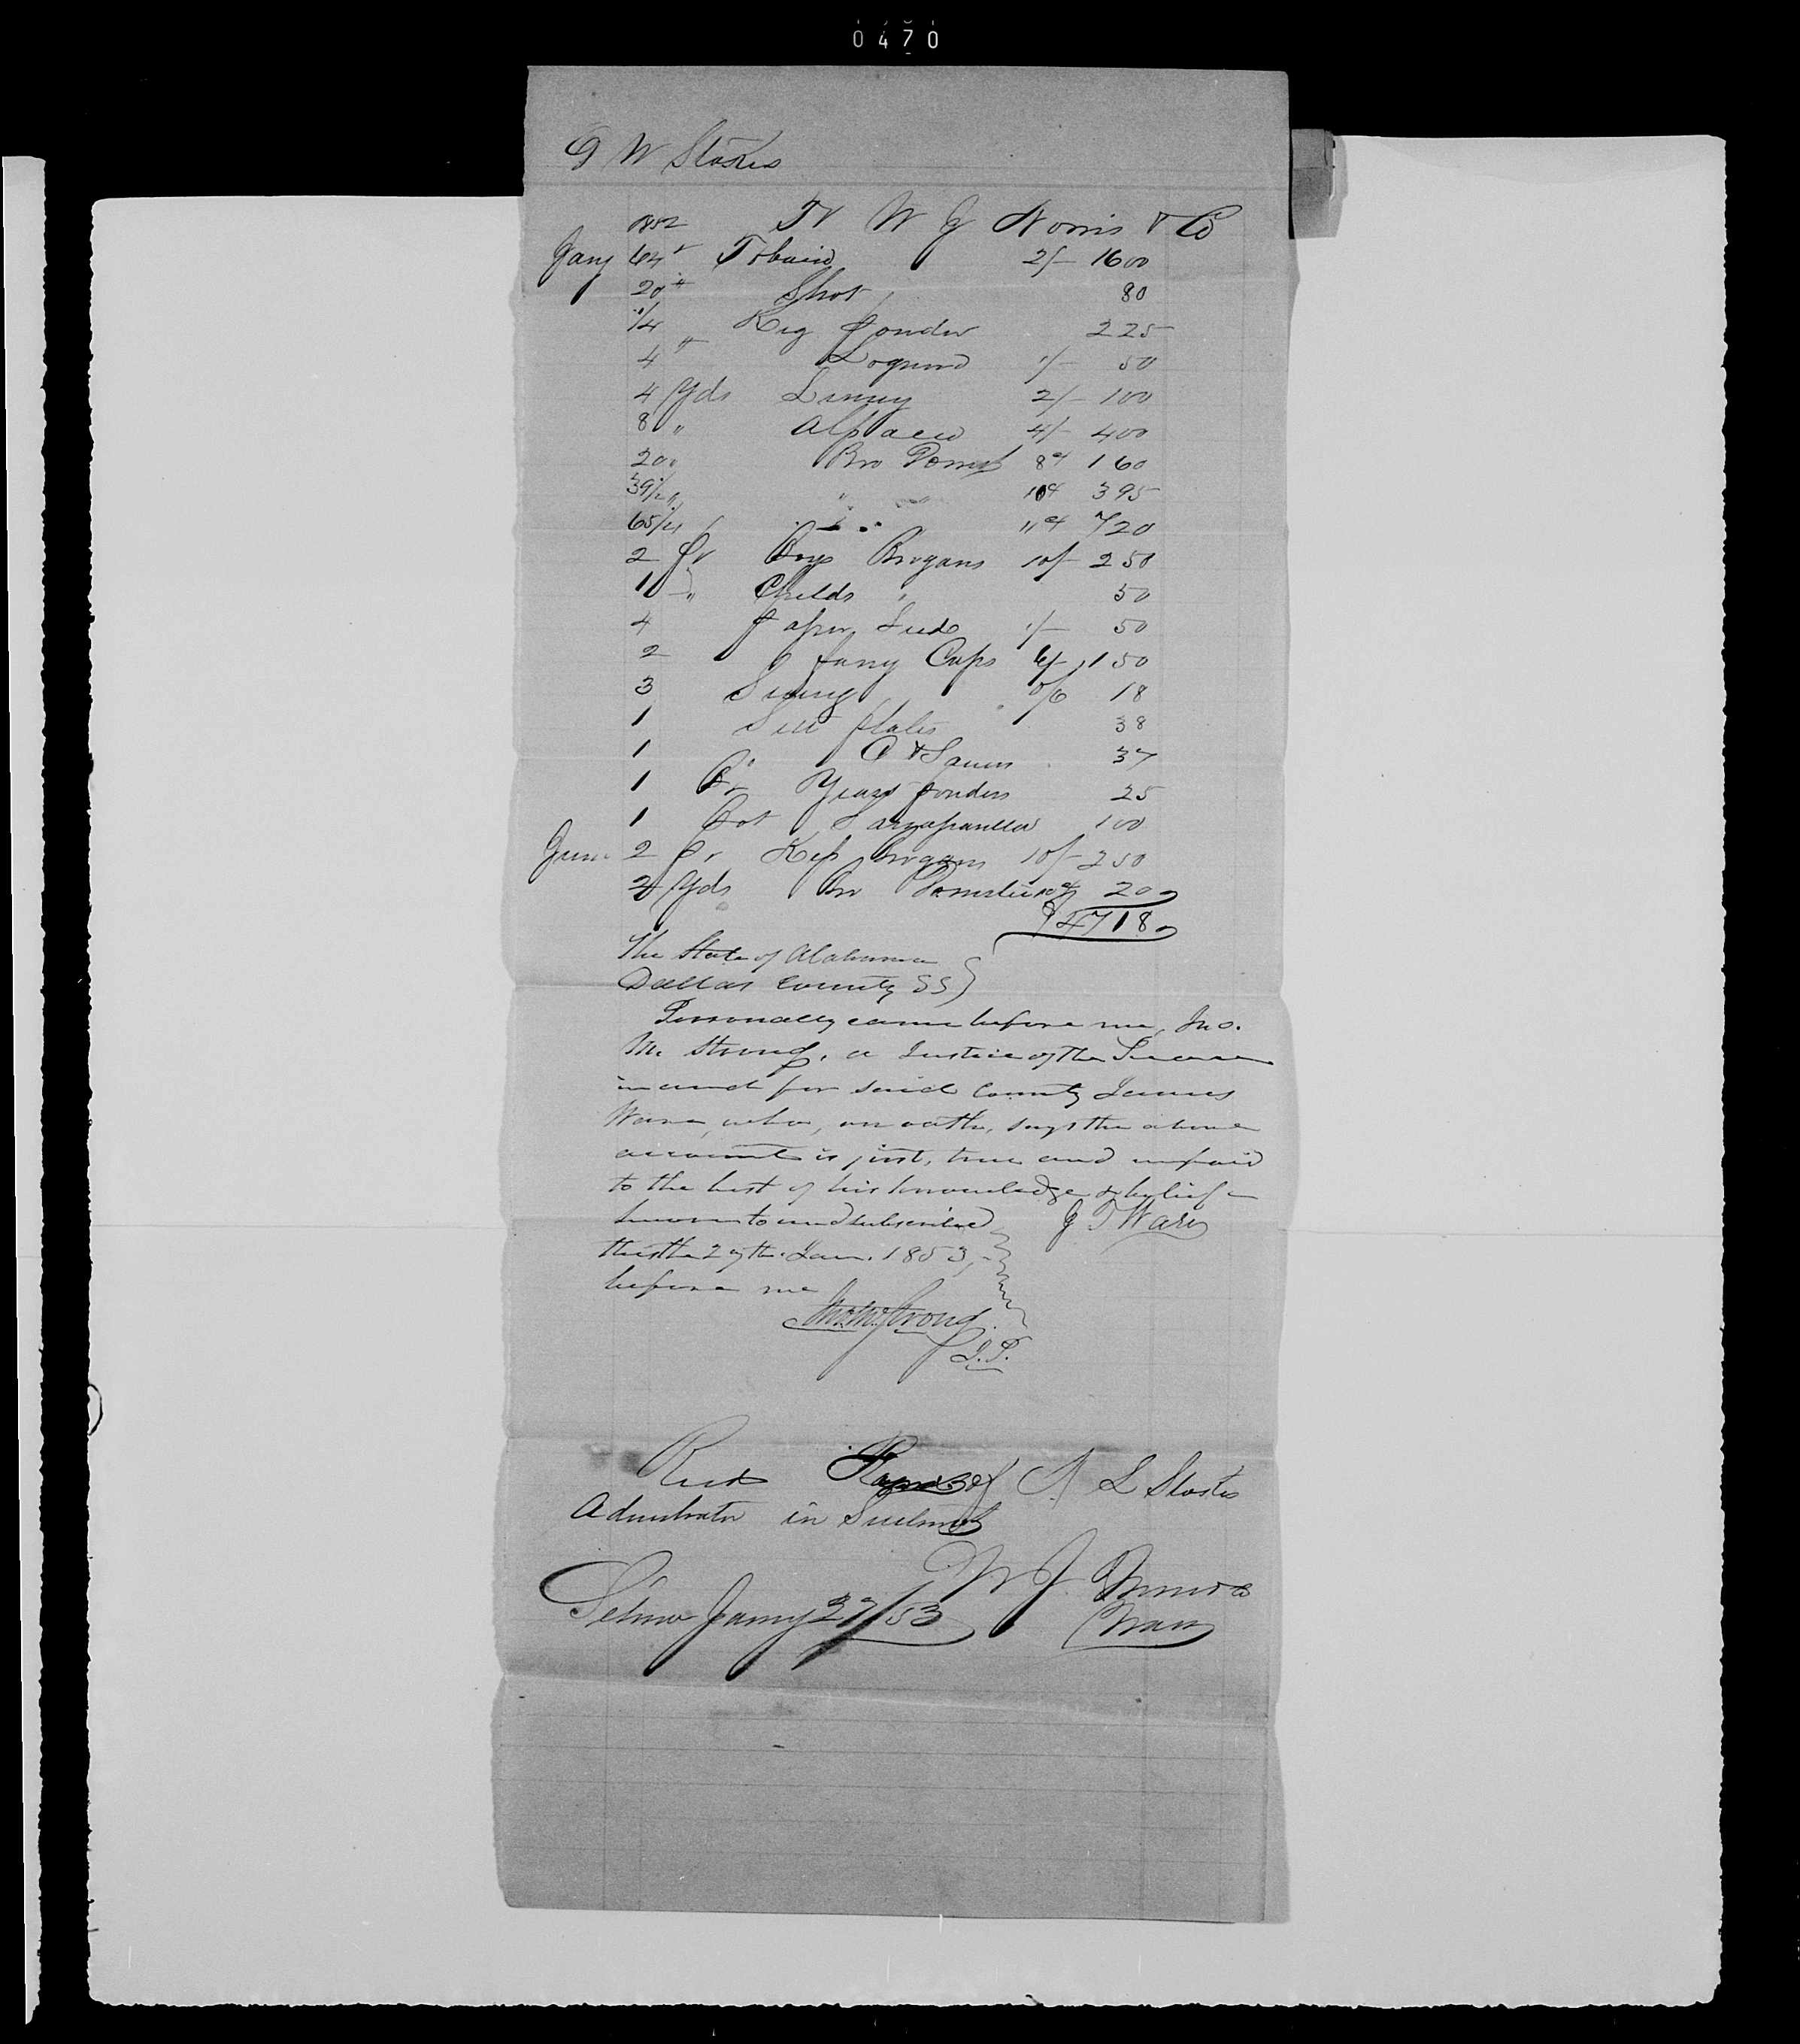 0470
G W Stokes
1852 To W J Norris & Co
Jany 64 # Tobacco 2/- 1600
20 # Shot 80
1/4 Keg Powder 225
4 # Logwood 1/- 50
4 Yds Linsey 2/- 100
8 " Alpacca 4/- 400
20 " Bro Domes 8 cts 160
39 1/2 " " " 10 cts 395
65 1/4 " " " 11 cts 720
2 Pr Boys Brogans 10/- 250
1 " Childs " 50
4 Paper Seed 1/- 50
2 Fancy Cups 6/- 150
3 0/6 18
1 Sett Plates 38
1 " C & Saucers 37
1 Bx Yeast Powders 25
1 Bot Sarsaparilla 100
June 2 Pr Kip Brogans 10/- 250
2 Yds Bro Domestic 10 cts 20
$ 4718
The State of Alabama
Dallas County SS
Personally came before me, Jno.
M. Strong, a Justice of the Peace
in and for said County James
Ware, who, on oath, says the above
account is just, true and unpaid
to the best of his knowledge & belief
Sworn to and subscribed J T Ware
this the 27th Jan. 1853,
before me
Jno. M. Strong
J.P.
Recd of A L Stokes
Admistrator in
W J Norris & Co
Selma Jany 27/53 Ware